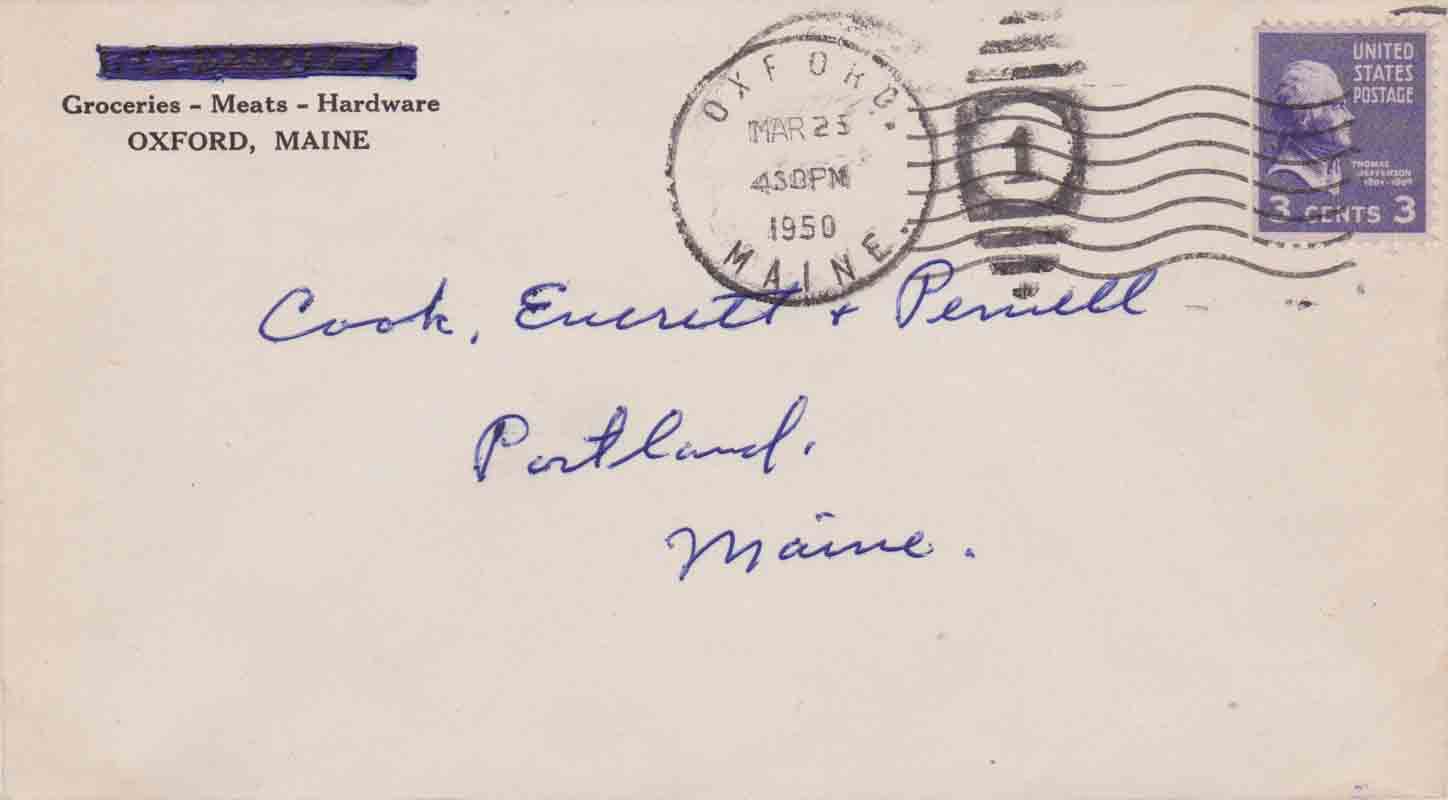 Groceries - Meats - Hardware
OXFORD, MAINE
OXFORD,
MAR 23
430PM
1950
MAINE.
1
UNITED
STATES
POSTAGE
THOMAS
JEFFERSON
3 CENTS 3
Cook, Everett + Pennell
Portland,
Maine.